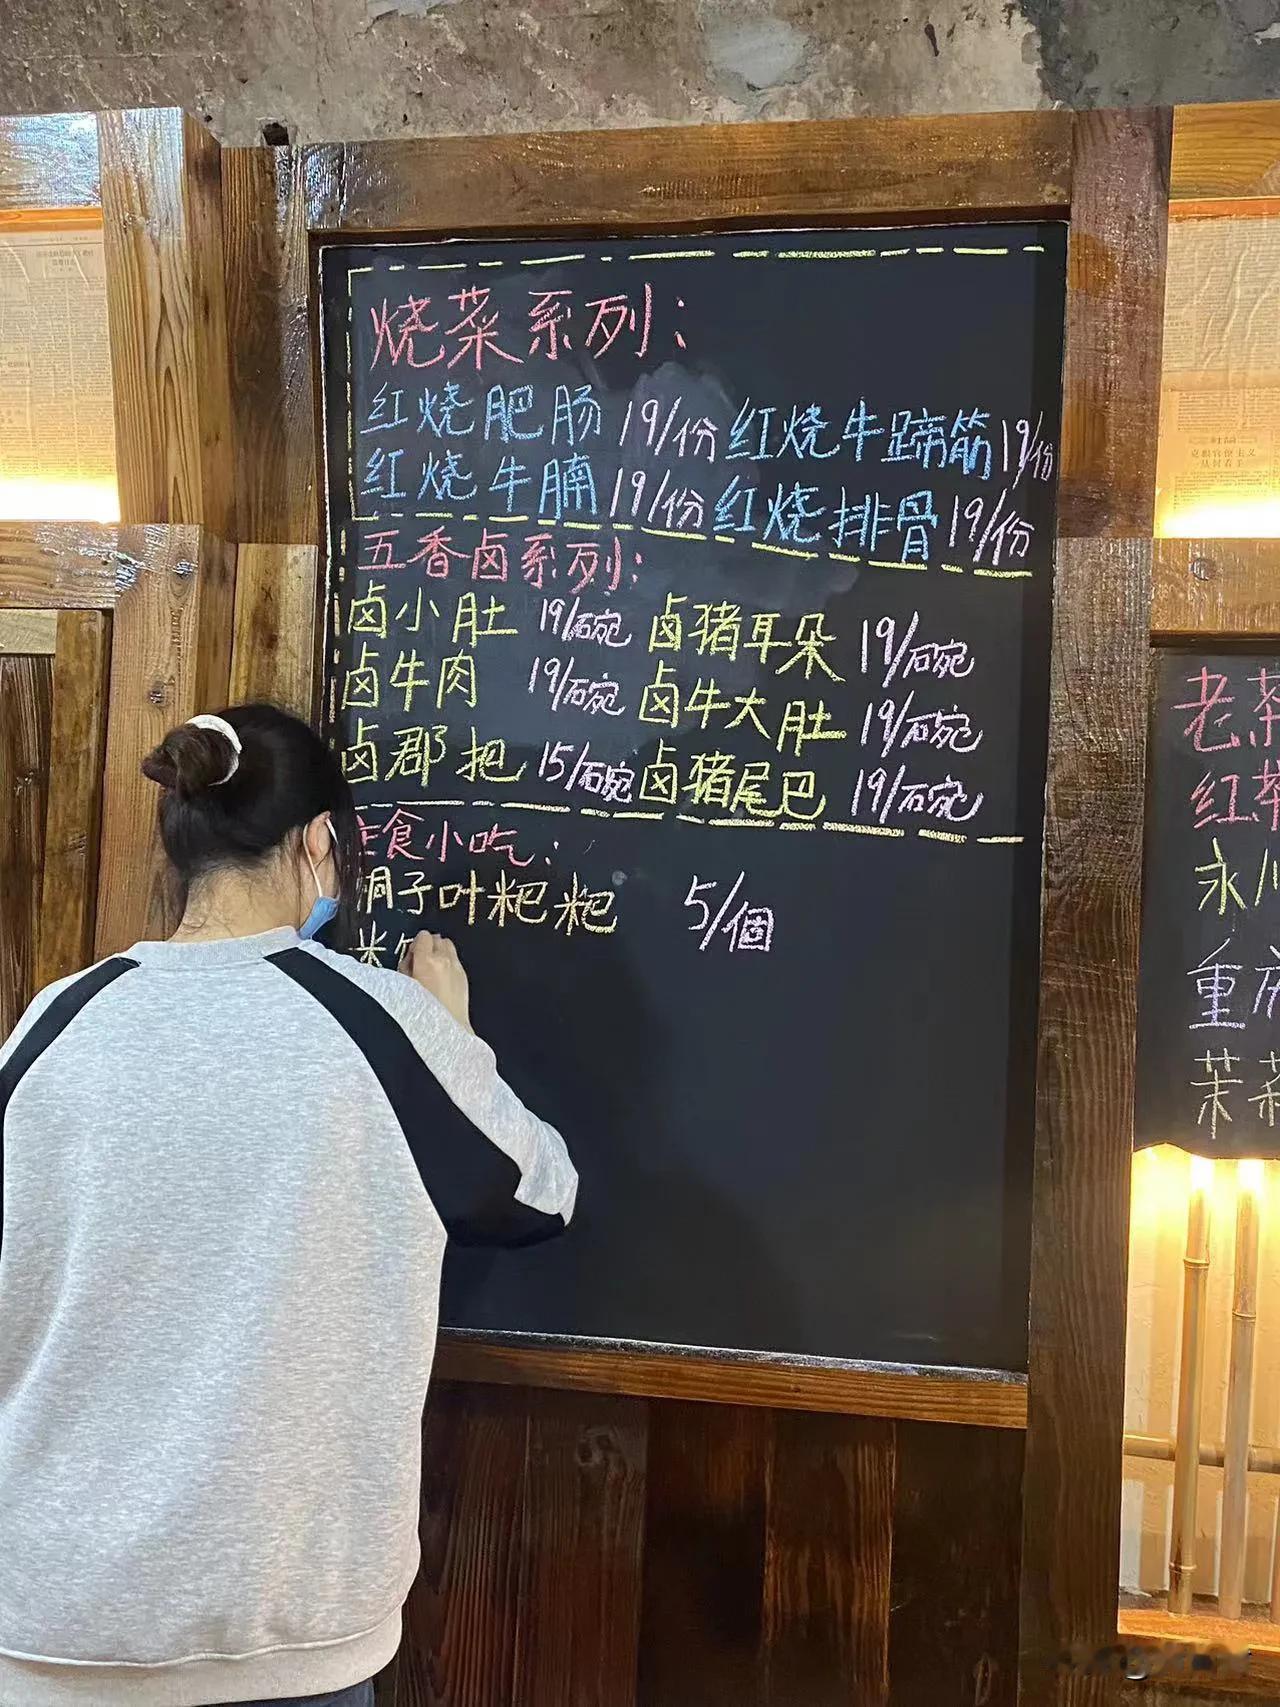 烧菜系列：
红烧肥肠 19/份 红烧牛蹄筋 19/份
红烧牛腩 19/份 红烧排骨 19/份
五香卤系列：
卤小肚 19/碗 卤猪耳朵 19/碗
卤牛肉 19/碗 卤牛大肚 19/碗
卤郡把 15/碗 卤猪尾巴 19/碗
主食小吃：
桐子叶粑粑 5/個
米
老
红
永川
重庆
茉莉